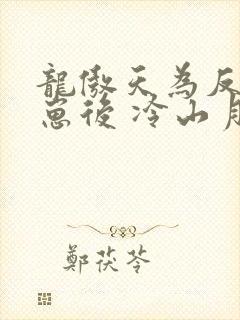 龍傲天為反
崽後 冷山月
鄭茯苓